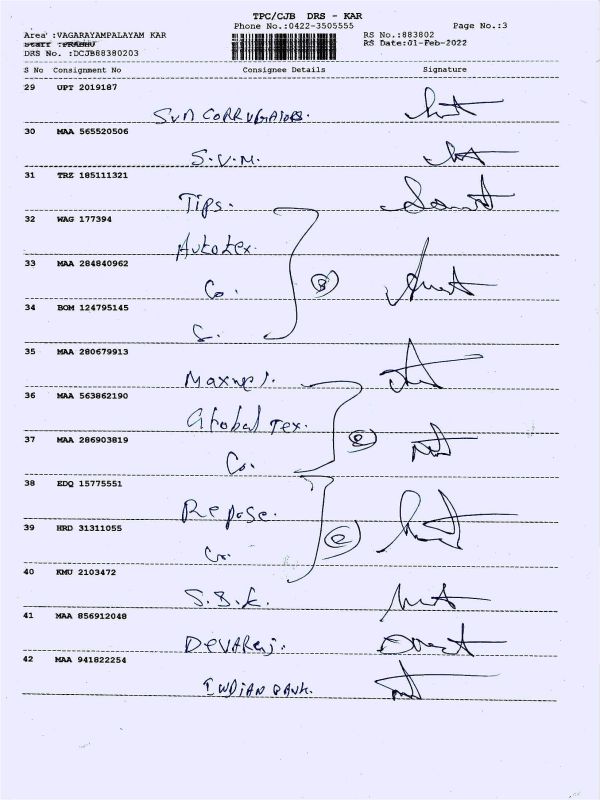 TPC/CJB DRS - KAR
Phone No.:0422-3505555 Page No.:3
Area :VAGARAYAMPALAYAM KAR RS No.:883802
Staff :PRABHU RS Date:01-Feb-2022
DRS No. :DCJB88380203
S No Consignment No Consignee Details Signature
29 UPT 2019187
Sun Corrugators.
30 MAA 565520506
S.V.M.
31 TRZ 185111321
Tips.
32 WAG 177394
Autotex.
33 MAA 284840962
Co.
34 BOM 124795145
S.
35 MAA 280679913
Maxwel.
36 MAA 563862190
Global Tex.
37 MAA 286903819
Co.
38 EDQ 15775551
Repose.
39 HRD 31311055
Co.
40 KMU 2103472
S.B.K.
41 MAA 856912048
Devaraj.
42 MAA 941822254
Indian Bank.